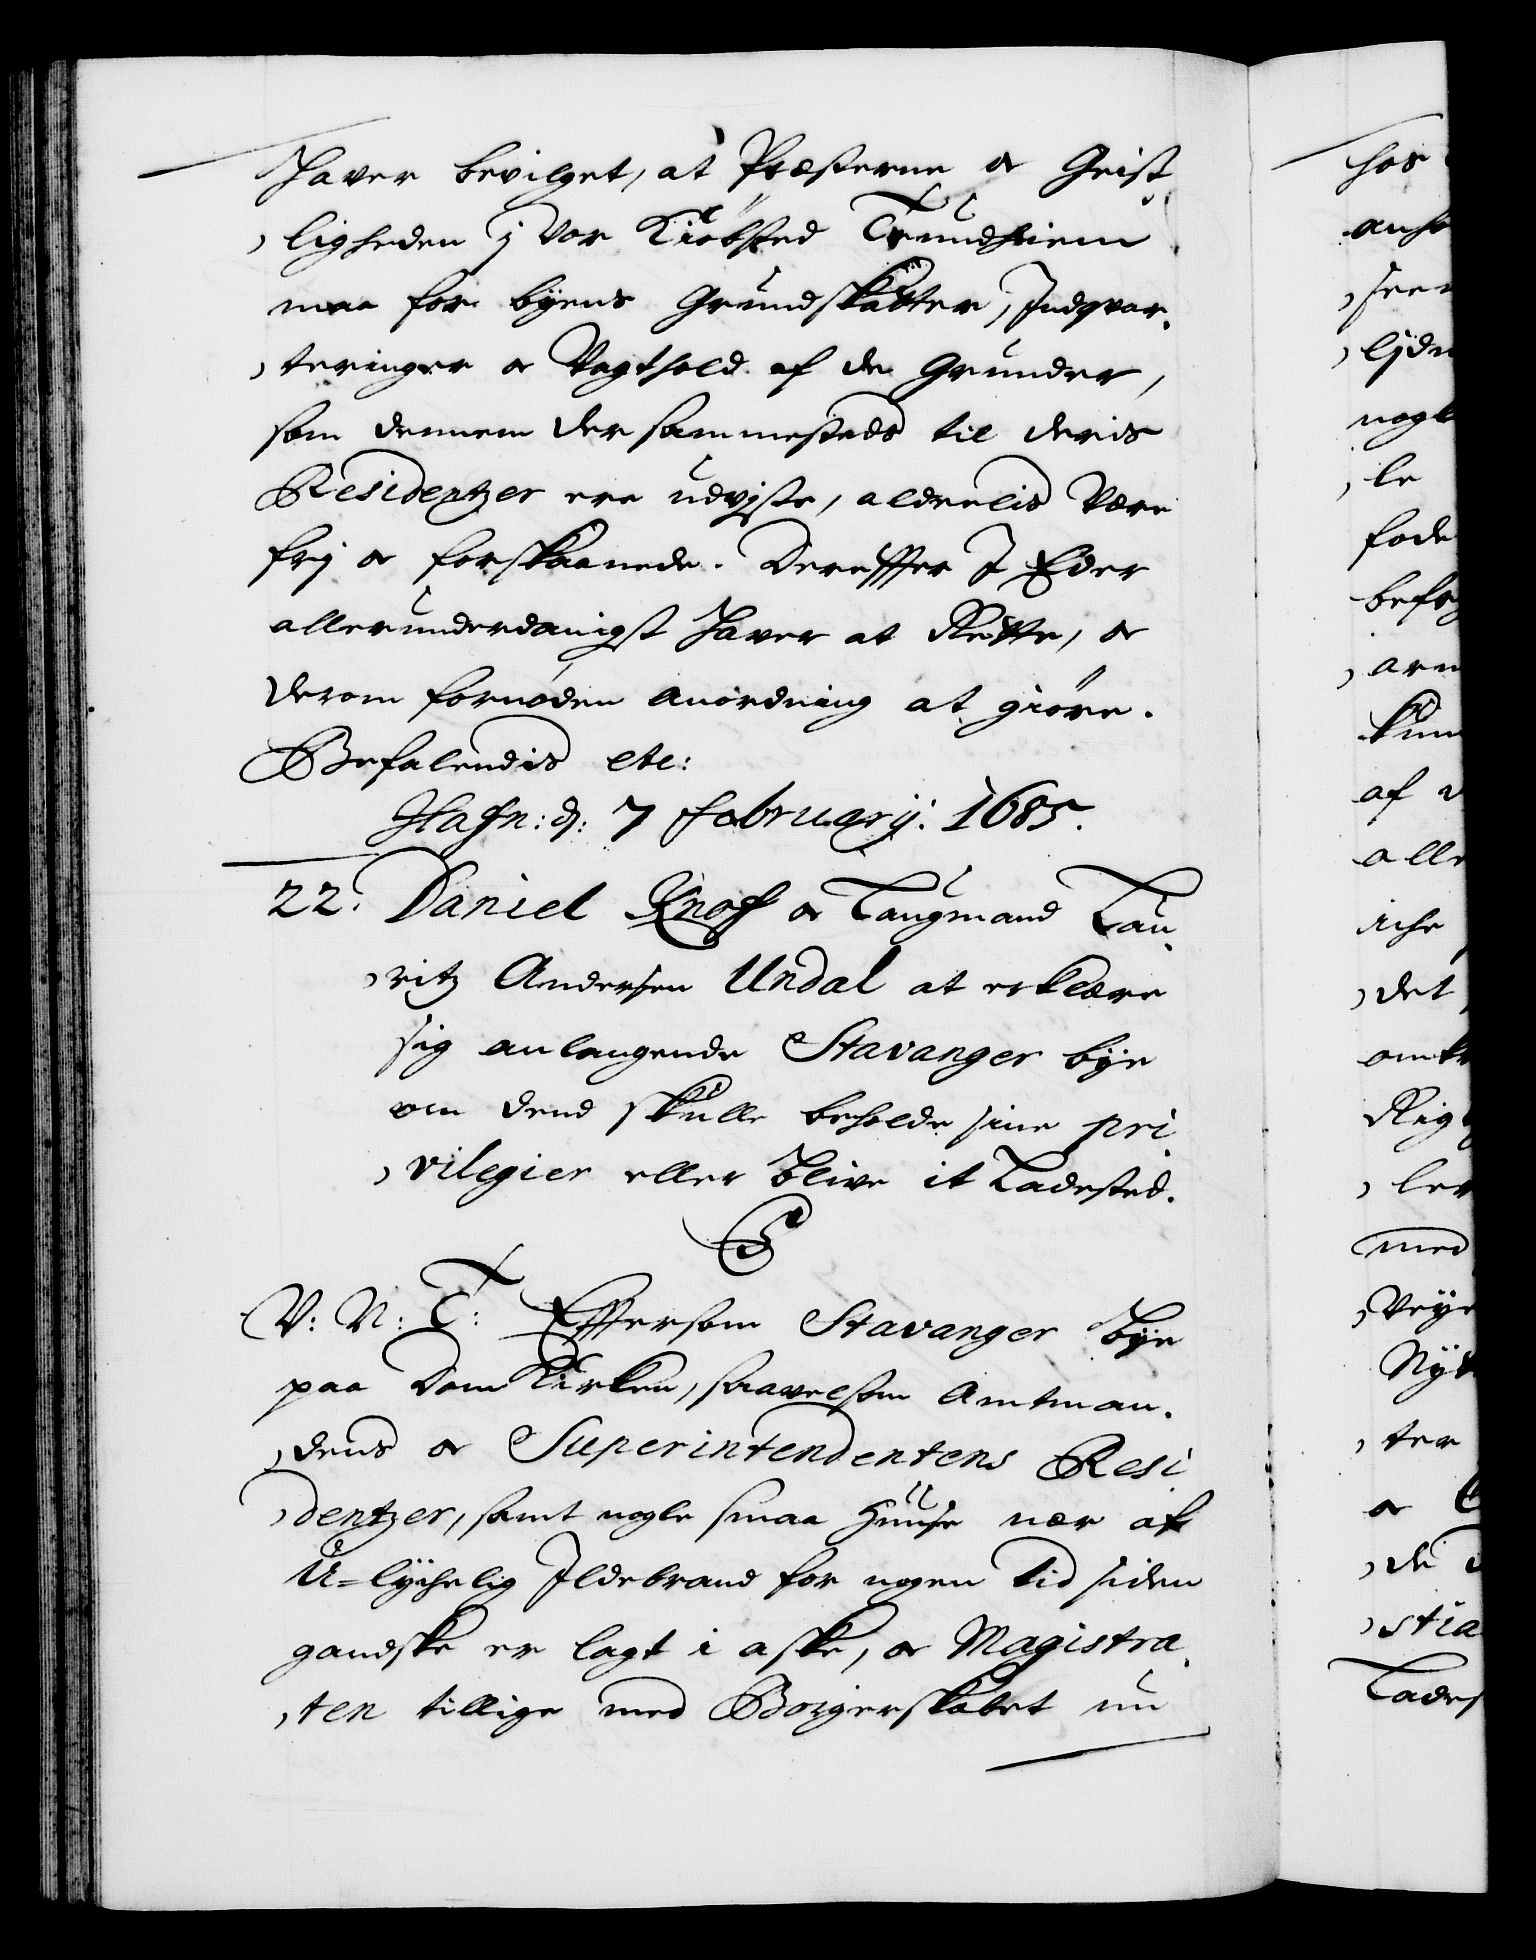 hafver bevilget, at Præsterne oc Geist
ligheden j vor Kiöbsted Trundhiem
maa for byens Grundskatter, Indqvar-
teringer oc Vagthold af de Grunder,
som dennem der sammesteds til deris
Residentzer ere udvjste, aldeelis være
frj oc forskaanede. Derefter I Eder
allerunderdanigst hafver at Rette, oc
derom fornöden anordning at giöre.
Befalendis etc:
Hafn: d: 7 Februarij. 1685.
22. Daniel Knoff oc Laugmand Lau-
ritz Andersen Undal at erklære
sig anlangende Stavanger bye
om dend skulle beholde sine pri
vilegier eller blive it Ladested.
C5
V: N: T: Eftersom Stavanger bye
paa Dom Kirken, saavelsom Amtman-
dens oc Superintendentens Resi
dentzer, samt nogle smaa Huuse nær af
U-lychelig Ildebrand for nogen tid siden
gandske er lagt i aske, oc Magistra-
ten tillige med Borgerskabet nu
hos
le
fode
af
alle
det
med
ter
oc
de
stia
Lades